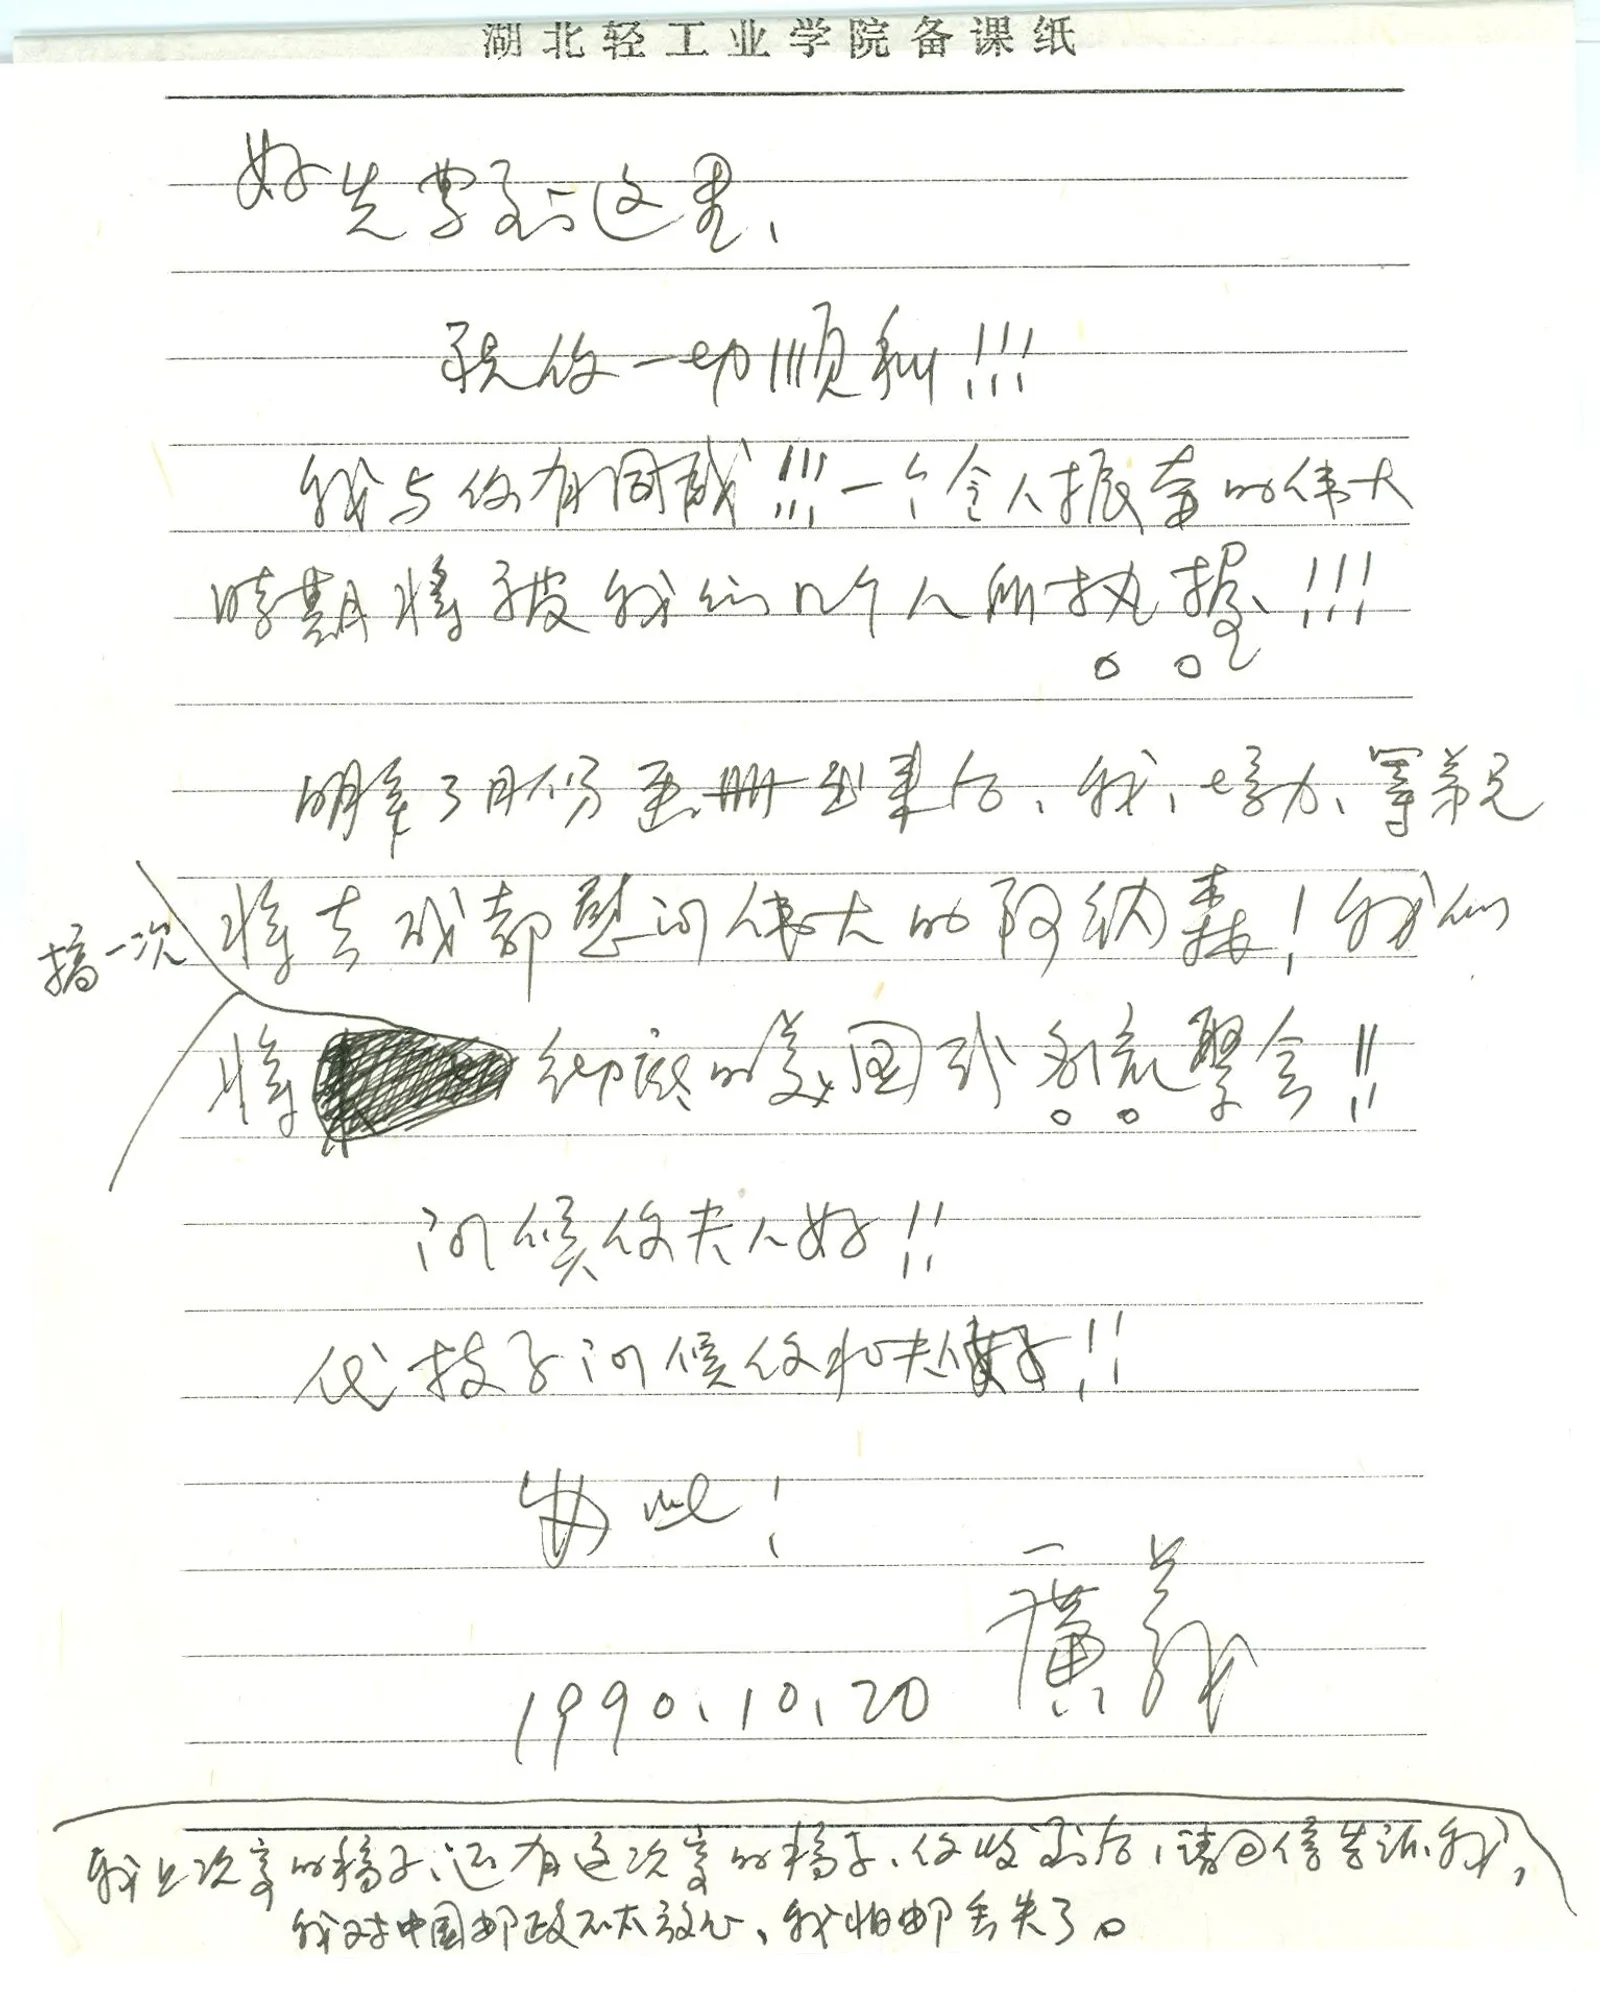 湖北轻工业学院备课纸
好先学到这里、
祝你一切顺利!!!
我与你有同感!!!一个令人振奋的伟大
时期将被我们几个人所执握、!!!
明年3月份 画册出来后、我、培力、等弟兄
将去成都慰问伟大的阿纳森!我们
搞一次
将 彻底的美国式 会!!
问候你夫人好!!
代技子问候你和夫人好!!
安此!
广义
1990、10、20
我上次寄的稿子、还有这次寄的稿子、你收到后、请回信告诉我,
我对中国邮政不太放心、我怕邮丢失了。